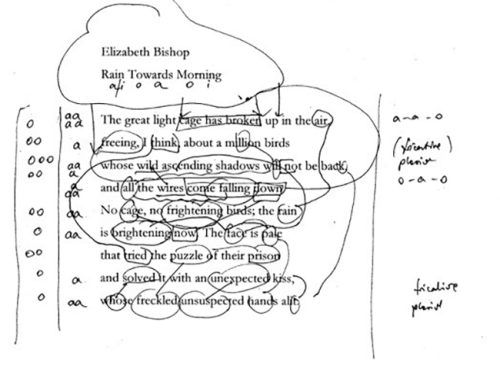 Elizabeth Bishop
Rain Towards Morning
ai o a o i
o aa aa The great light cage has broken up in the air, a-a-o
oo a freeing, I think, about a million birds (fricative)
ooo aa whose wild ascending shadows will not be back, plosive
oo a and all the wires come falling down. o-a-o
aa
oo aa No cage, no frightening birds; the rain
o aa is brightening now. The face is pale
oo that tried the puzzle of their prison
o a and solved it with an unexpected kiss, fricative
o aa whose freckled unsuspected hands alit. plosive